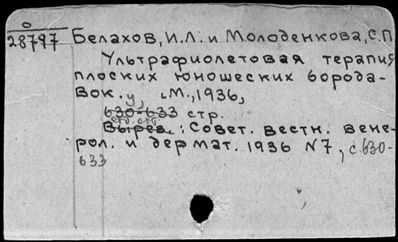 0
28797 Белахов, И.Л. и Молоденкова, С.П.
Ультрафиолетовая терапия
плоских юношеских борода-
вок. М., 1936,
630-633 стр.
Вырез.: Совет. вестн. вене-
рол. и дермат. 1936 №7, с. 630-
633